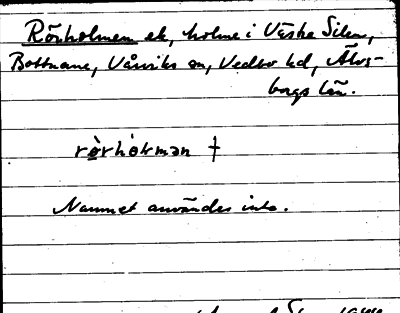 Rörholmen ek, holme i Västra Silen,
Bottnane, Vårviks sn, Vedbo hd, Älvs-
borgs län.
rörhòlman †
Namnet användes inte.